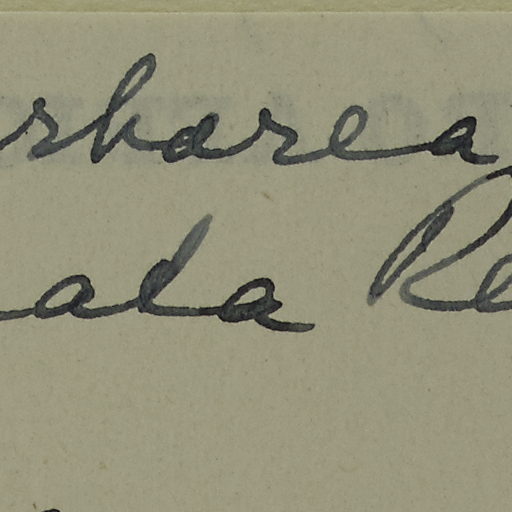 rharea
ala Re